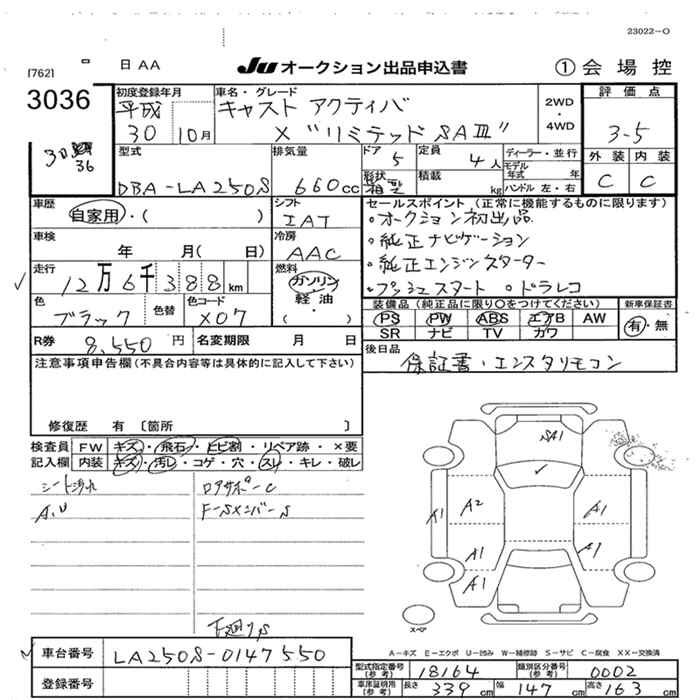 23022-O
[762]
日 AA
Ju オークション出品申込書
① 会 場 控
3036
初度登録年月
平成
30 10月
車名・グレード
キャスト アクティバ
X "リミテッド SAⅢ"
2WD
・
4WD
評 価 点
3-5
外 装 内 装
C C
36
型式
DBA-LA250S
排気量
660cc
ドア
5
定員
4人
形状
箱型
積載
kg
ディーラー・並行
モデル
年式 年
ハンドル 左・右
車歴
自家用・( )
シフト
IAT
セールスポイント (正常に機能するものに限ります)
・オークション初出品
・純正ナビゲーション
・純正エンジンスターター
・プッシュスタート ・ドラレコ
車検
年 月( 日)
冷房
AAC
走行
12万6千388km
燃料
ガソリン
軽 油・
( )
色
ブラック
色替
色コード
X07
装備品 (純正品に限り○をつけてください)
PS PW ABS エアB AW
SR ナビ TV カワ
新車保証書
有・無
R券 8,550円
名変期限 月 日
後日品
保証書・エンスタリモコン
注意事項申告欄(不具合内容等は具体的に記入して下さい)
修復歴 有 〔箇所 〕
検査員 FW キズ・飛石・ヒビ割・リペア跡・×要
記入欄 内装 キズ・汚レ・コゲ・穴・スレ・キレ・破レ
シート汚れ
A.U
ロアサポーC
F-Sメンバーs
下廻りS
SA1
A1
A2
A1
A1
A1
A1
スペア
A-キズ E-エクボ U-凹み W-補修跡 S-サビ C-腐食 XX-交換済
車台番号 LA250S-0147550
登録番号
型式指定番号
(参考)
18164
類別区分番号
(参考)
0002
車庫証明用
(参考)
長さ 339cm 幅 147cm 高さ 163cm